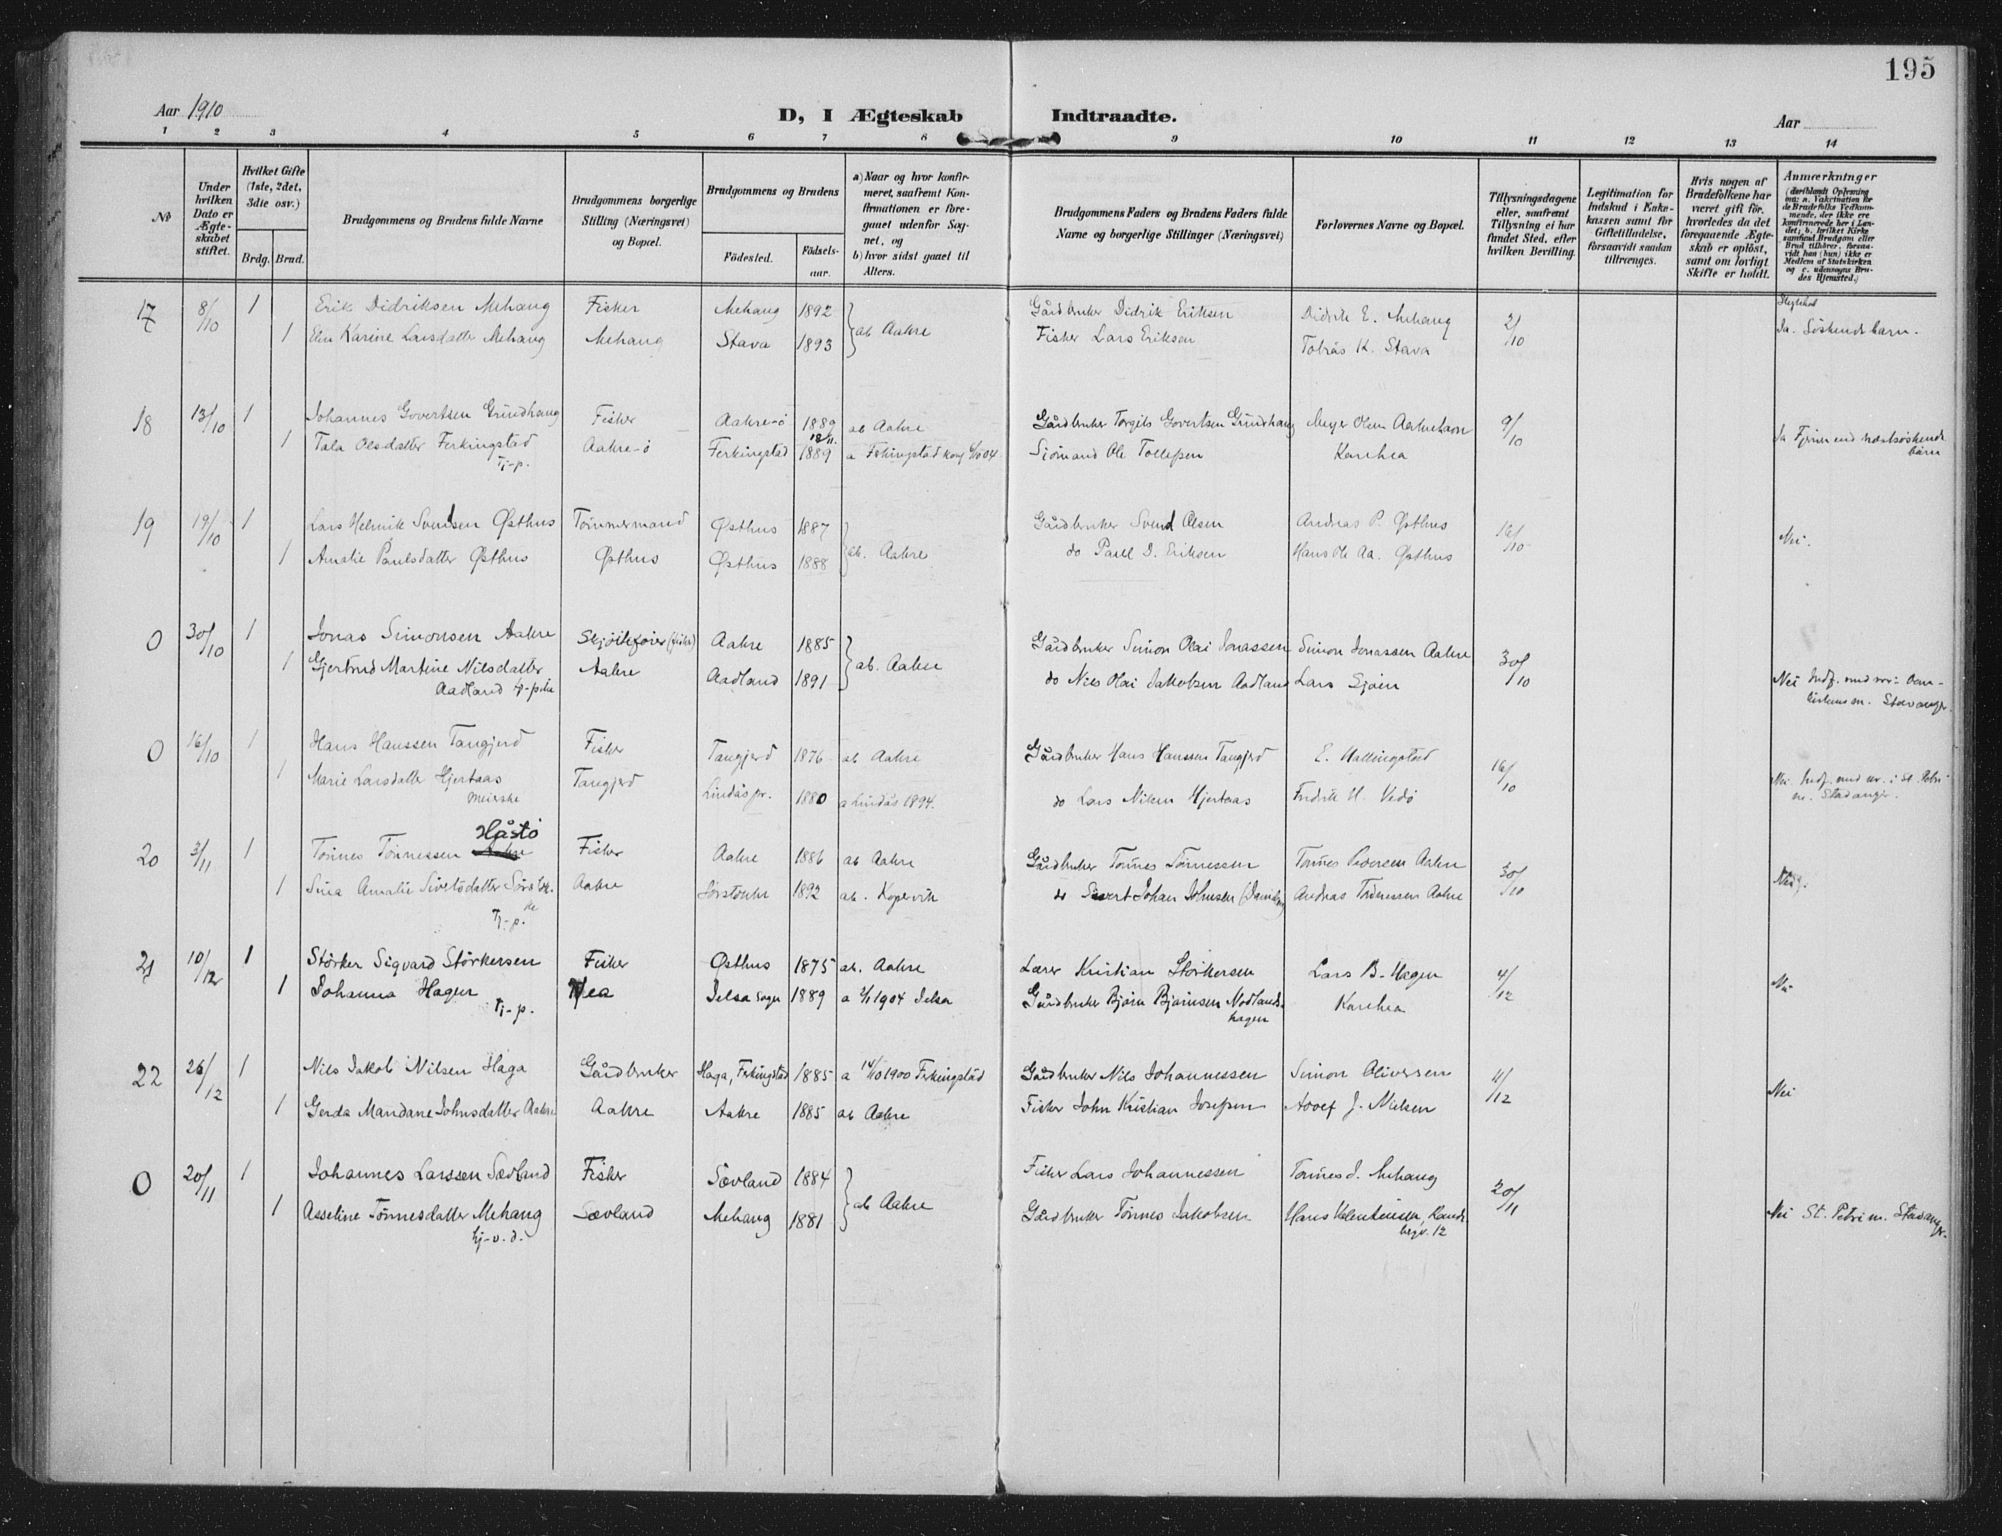 195
Aar 1910
D, I Ægteskab Indtraadte.
Aar
1 2 3 4 5 6 7 8 9 10 11 12 13 14
No
Under hvilken Dato er Ægteskabet stiftet.
Hvilket Gifte (1ste, 2det, 3die osv.)
Brdg. Brud.
Brudgommens og Brudens fulde Navne
Brudgommens borgerlige Stilling (Næringsvei) og Bopæl.
Brudgommens og Brudens
Födested.
Födselsaar.
a) Naar og hvor konfirmeret, saafremt Konfirmationen er foregaaet udenfor Sognet, og
b) hvor sidst gaaet til Alters.
Brudgommens Faders og Brudens Faders fulde Navne og borgerlige Stillinger (Næringsvei)
Forlovernes Navne og Bopæl.
Tillysningsdagene eller, saafremt Tillysning ei har fundet Sted, efter hvilken Bevilling.
Legitimation for Indskud i Enkekassen samt for Giftetilladelse, forsaavidt saadan tiltrænges.
Hvis nogen af Brudefolkene har været gift för, hvorledes da det foregaaende Ægteskab er oplöst, samt om lovligt Skifte er holdt.
Anmærkninger
17 8/10 1 Erik Didriksen Mehaug Fisker Mehaug 1892 Gårdbruker Didrik Eriksen Didrik E. Mehaug 2/10
1 Elen Karine Larsdatter Mehaug Mehaug Stava 1893 ab Aakre Fisker Lars Eriksen Tobias K. Stava Ja. Söskendebarn.
18 13/10 1 Johannes Govertsen Grindhaug Fisker Aakre-ö 1889 ab Aakre Gårdbruker Torgils Govertsen Grindhaug Meyer Olsen Aakrehavn 9/10
1 Tala Olsdatter Ferkingstad Aakre-ö Ferkingstad 1889 a Ferkingstad Sjömand Ole Tollefsen
Tj-p.
19 19/10 1 Lars Helmik Svendsen Østhus Tømmermand Østhus 1887 Gårdbruker Svend Olsen Andreas P. Østhus 16/10
1 Amalie Paulsdatter Østhus Østhus Østhus 1888 ab. Aakre do Paul D. Eriksen Hans Ole Aa. Østhus Nei.
0 30/10 1 Jonas Simonsen Aakre Aakre 1885 Gårdbruker Simon Olai Jonassen Simon Jonassen Aakre 30/10
1 Gjertrud Martine Nilsdatter Aakre Aadland 1891 ab. Aakre do Nils Olai Jakobsen Aadland Lars Sjöen Nei
Aadland Stavanger.
0 16/10 1 Hans Hanssen Tangjerd Fisker Tangjerd 1876 ab Aakre Gårdbruker Hans Hanssen Tangjerd E. Hallingstad 16/10
1 Marie Larsdatter Hjertaas Tangjerd Lindås pr. 1880 a Lindås 1894. do Lars Nilsen Hjertaas Fredrik H. Vedö
Stavanger.
Håstö
20 3/11 1 Tönnes Tönnessen Aakre Fisker Aakre 1886 ab Aakre Gårdbruker Tönnes Tönnessen Tönnes Pedersen Aakre 30/10
1 Sina Amalie Sivertsdatter Aakre 1892 ab. Kopervik Sivert Johan Johnsen Andreas Tönnessen Aakre
Tj-p.
21 10/12 1 Störker Sigvard Störkersen Fisker Østhus 1875 ab. Aakre Lærer Kristian Störkersen Lars B. Hagen 4/12
1 Johanna Hagen Vea Jelsa sogn 1889 Jelsa Gårdbruker Björn Björnsen Nei
Tj-p.
22 26/12 1 Nils Jakob Nilsen Haga Gårdbruker Haga, Ferkingstad 1885 a 14/10 1900 Ferkingstad Gårdbruker Nils Johannessen Simon Oliversen 11/12
1 Gerda Mandane Johnsdatter Aakre Aakre Aakre 1885 ab Aakre Fisker John Kristian Josefsen Adolf J. Nielsen Nei
0 20/11 1 Johannes Larssen Sævland Fisker Sævland 1884 Fisker Lars Johannessen Tönnes J. Mehaug 20/11
1 Asseline Tönnesdatter Mehaug Sævland Mehaug 1881 ab Aakre Gårdbruker Tönnes Jakobsen Nei St. Petri m. Stavanger.